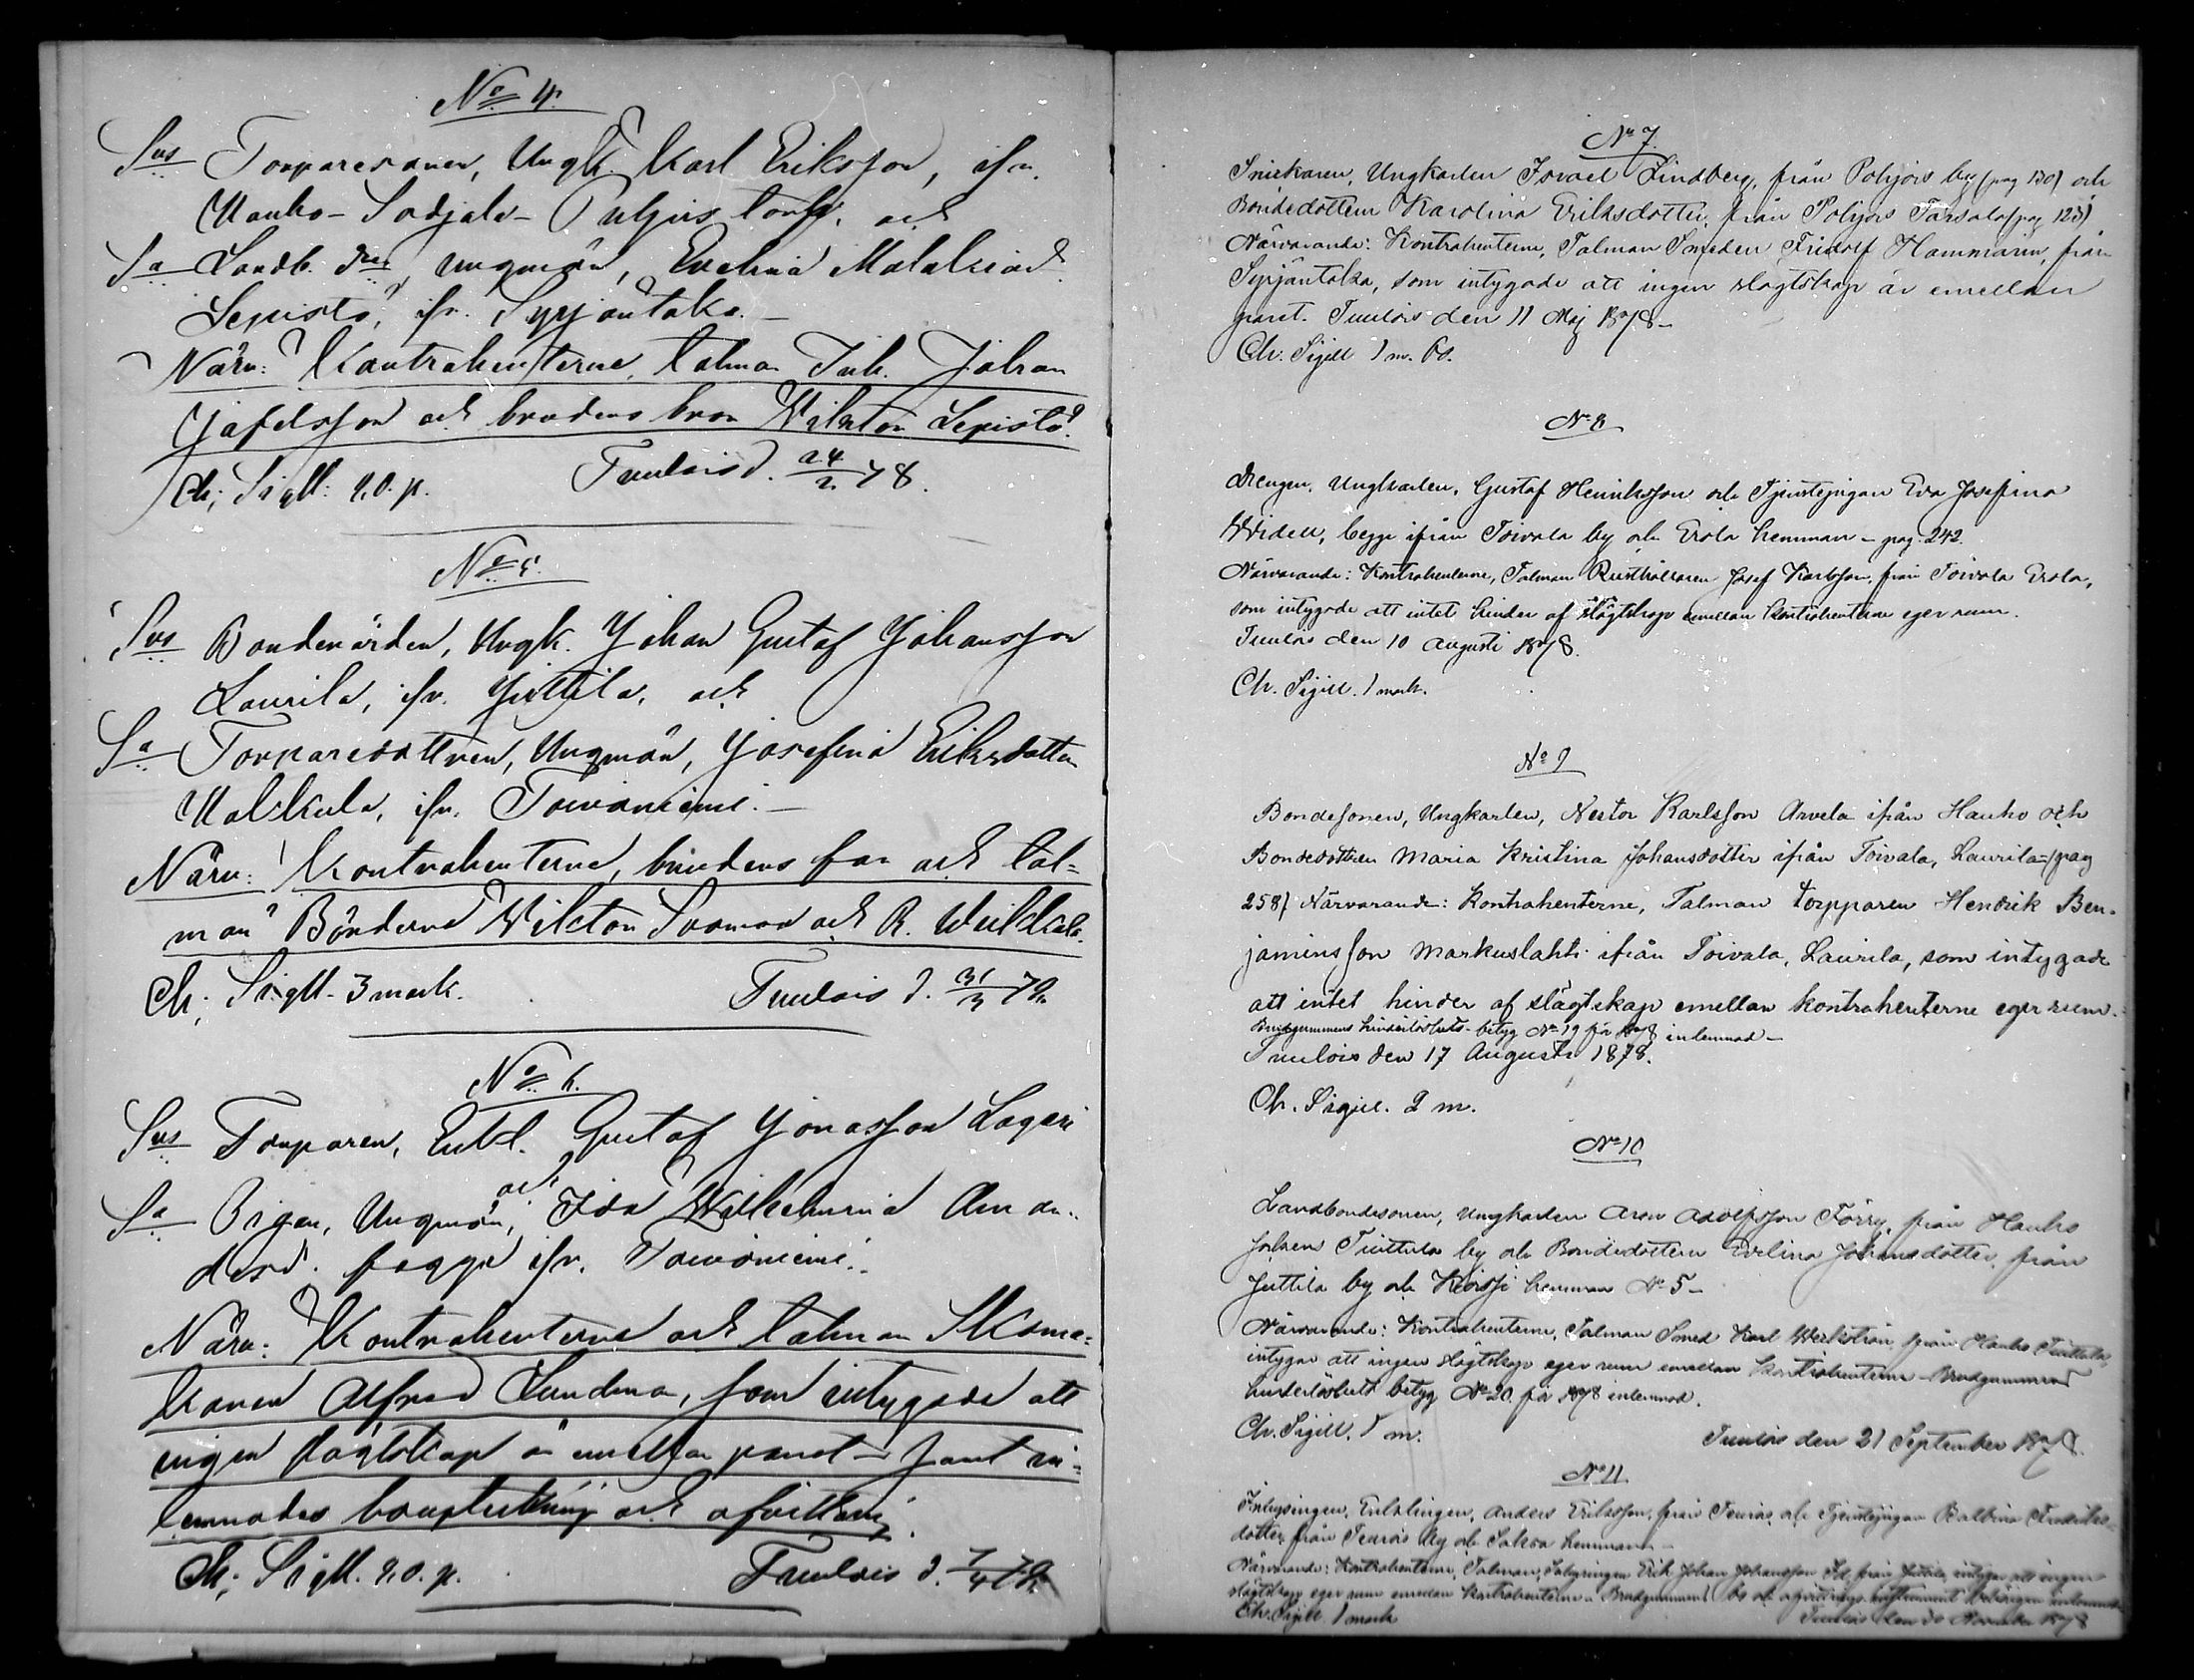 No 4.
Sus Torparesonen, Ungk. Karl Eriksson, ifr.
Hauho-Sodjala- torp. och
Sa Landb. dr, ungmön, Evelina
Lepistö, ifr. Syrjäntaka.
Närv: Kontrahenterne, talman Inh. Johan
och brudens bror Viktor Lepistö.
Ch; Sigll: 20. p. Tuulois d. 24/2 78.
No 5.
Sus Bondevärden, Ungk. Johan Gustaf Johansson
Laurila, ifr. Juttila, och
Sa Torparedottren, Ungmön, Josefina Eriksdotter
ifr. Toivaniemi.
Närv: Kontrahenterne, brudens far och tal-
man Bönderne Viktor och K.
Ch; Sigll. 3 mark. Tuulois d. 31/3 78.
No 6.
Sus Torparen, Enkl. Gustaf Jonasson
och
Sa Pigan, Ungmön, Ida Wilhelmina Aman-
dasd. begge ifr. Toivaniemi.
Närv: Kontrahenterne och talman Skoma-
karen Alfred Sundman, som intygade att
ingen slägtskap är emellan paret - samt in-
lemnades bouppteckning och afvittring.
Ch; Sigll. 20. p. Tuulois d. 7/4 78.
No 7.
Snickaren, Ungkarlen Israel Lindberg, från Pohjois by (pag 130) och
Bondedottern Karolina Eriksdotter, från Pohjois (pag 123)
Närvarande: Kontrahenterne, Talman Smeden Fridolf Hammarin, från
Syrjäntaka, som intygade att ingen slägtskap är emellan
paret. Tuulois den 11 Maj 1878 -
Ch. Sigill 1 m. 60.
No 8
Drengen, Ungkarlen, Gustaf Henriksson och Tjenstepigan Eva Josefina
Widell, begge ifrån Toivala by och Erola hemman - pag. 242.
Närvarande: Kontrahenterne, Talman Rusthållaren Josef Karlsson, från Toivala Erola,
som intygade att intet hinder af slägtskap emellan kontrahenterne eger rum.
Tuulois den 10 Augusti 1878.
Ch. Sigill. 1 mark.
No 9
Bondesonen, Ungkarlen, Nestor Karlsson Arvela ifrån Hauho och
Bondedottren Maria Kristina Johansdotter ifrån Toivala, Laurila - (pag
258) Närvarande: Kontrahenterne, Talman torpparen Hendrik Ben-
jaminsson Markuslahti ifrån Toivala, Laurila, som intygade
att intet hinder af slägtskap emellan kontrahenterne eger rum.
Brudgummens hinderlöshets-betyg No 19 för 1878 inlemnad -
Tuulois den 17 Augusti 1878.
Ch. Sigill. 2 m.
No 10
Landbondesonen, Ungkarlen Aron Adolfsson Törry, från Hauho
socken Tuittula by och Bondedottern Evelina Johansdotter, från
Juttila by och hemman No 5 -
Närvarande: Kontrahenterne, Talman Smed Karl från Hauho Tuittula,
intygar att ingen slägtskap eger rum emellan kontrahenterne - Brudgummens
hinderlöshets betyg No 20 för 1878 inlemnad.
Ch. Sigill. 1 m.
Tuulois den 21 September 1878.
No 11.
Inhysingen, Enklingen, Anders Eriksson, från Teuris, och Tjenstepigan Balbina Fredriks-
dotter, från Teuris by och hemman -
Närvarande: Kontrahenterne, Talman, Erik Johan Johansson från Juttila, intygar att ingen
slägtskap eger rum emellan Kontrahenterne. Brudgummens bo och afvittrings instrument inlemnad
Ch. Sigill 1 mark
Tuulois den 30 November 1878